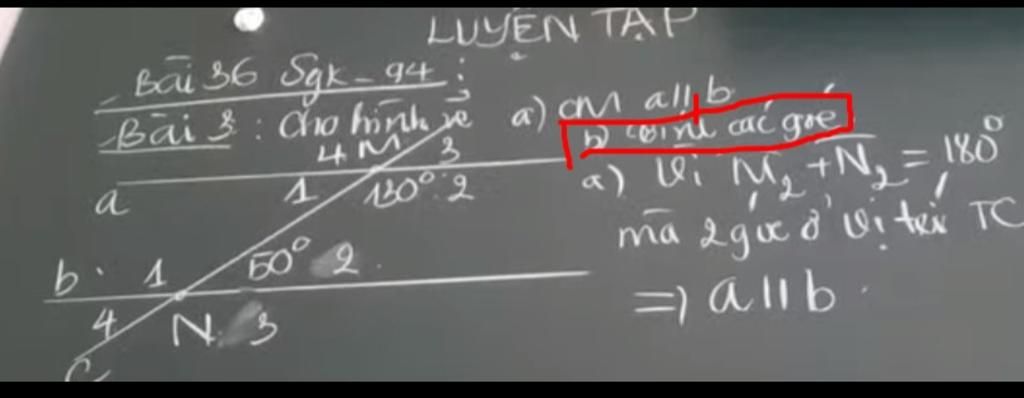 LUYỆN TẬP
Bài 36 Sgk - 94:
Bài 3: Cho hình vẽ
a) CM a // b
b) các góc
a) Vì M₂ + N₂ = 180°
mà 2 góc ở vị trí TC
=> a // b.
4 M 3
a 1 130° 2
b 1 50° 2
4 N 3
C